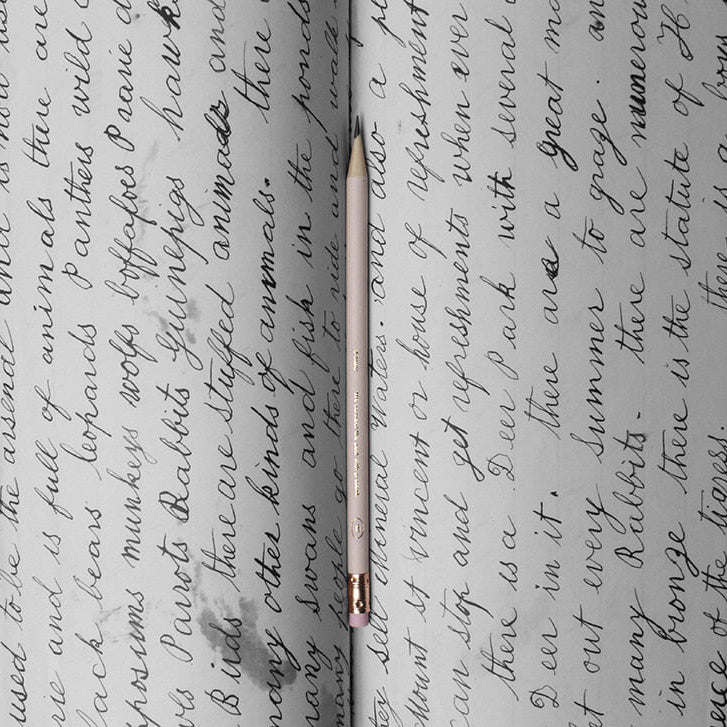 used to be the arsenal and is now
rie and is full of animals there are
lack bears leopards panthers wild
possums munkeys wolfs boffaloes Prarie d
ves Parrots Rabbits Guinepigs hawk
Birds there are stuffed animals and
any other kinds of animals. there
many swans and fish in the ponds
many people go there to ride and walk
they sell Mineral Waters. and also a pl
Mount st vincent or house of refreshment
an stop and get refreshments when ever
there is a Deer Park with several
Deer in it. there are a great ma
t out every summer to graze. an
many Rabbits. there are numerou
in bronze there is the statute of H
e of the tigress.